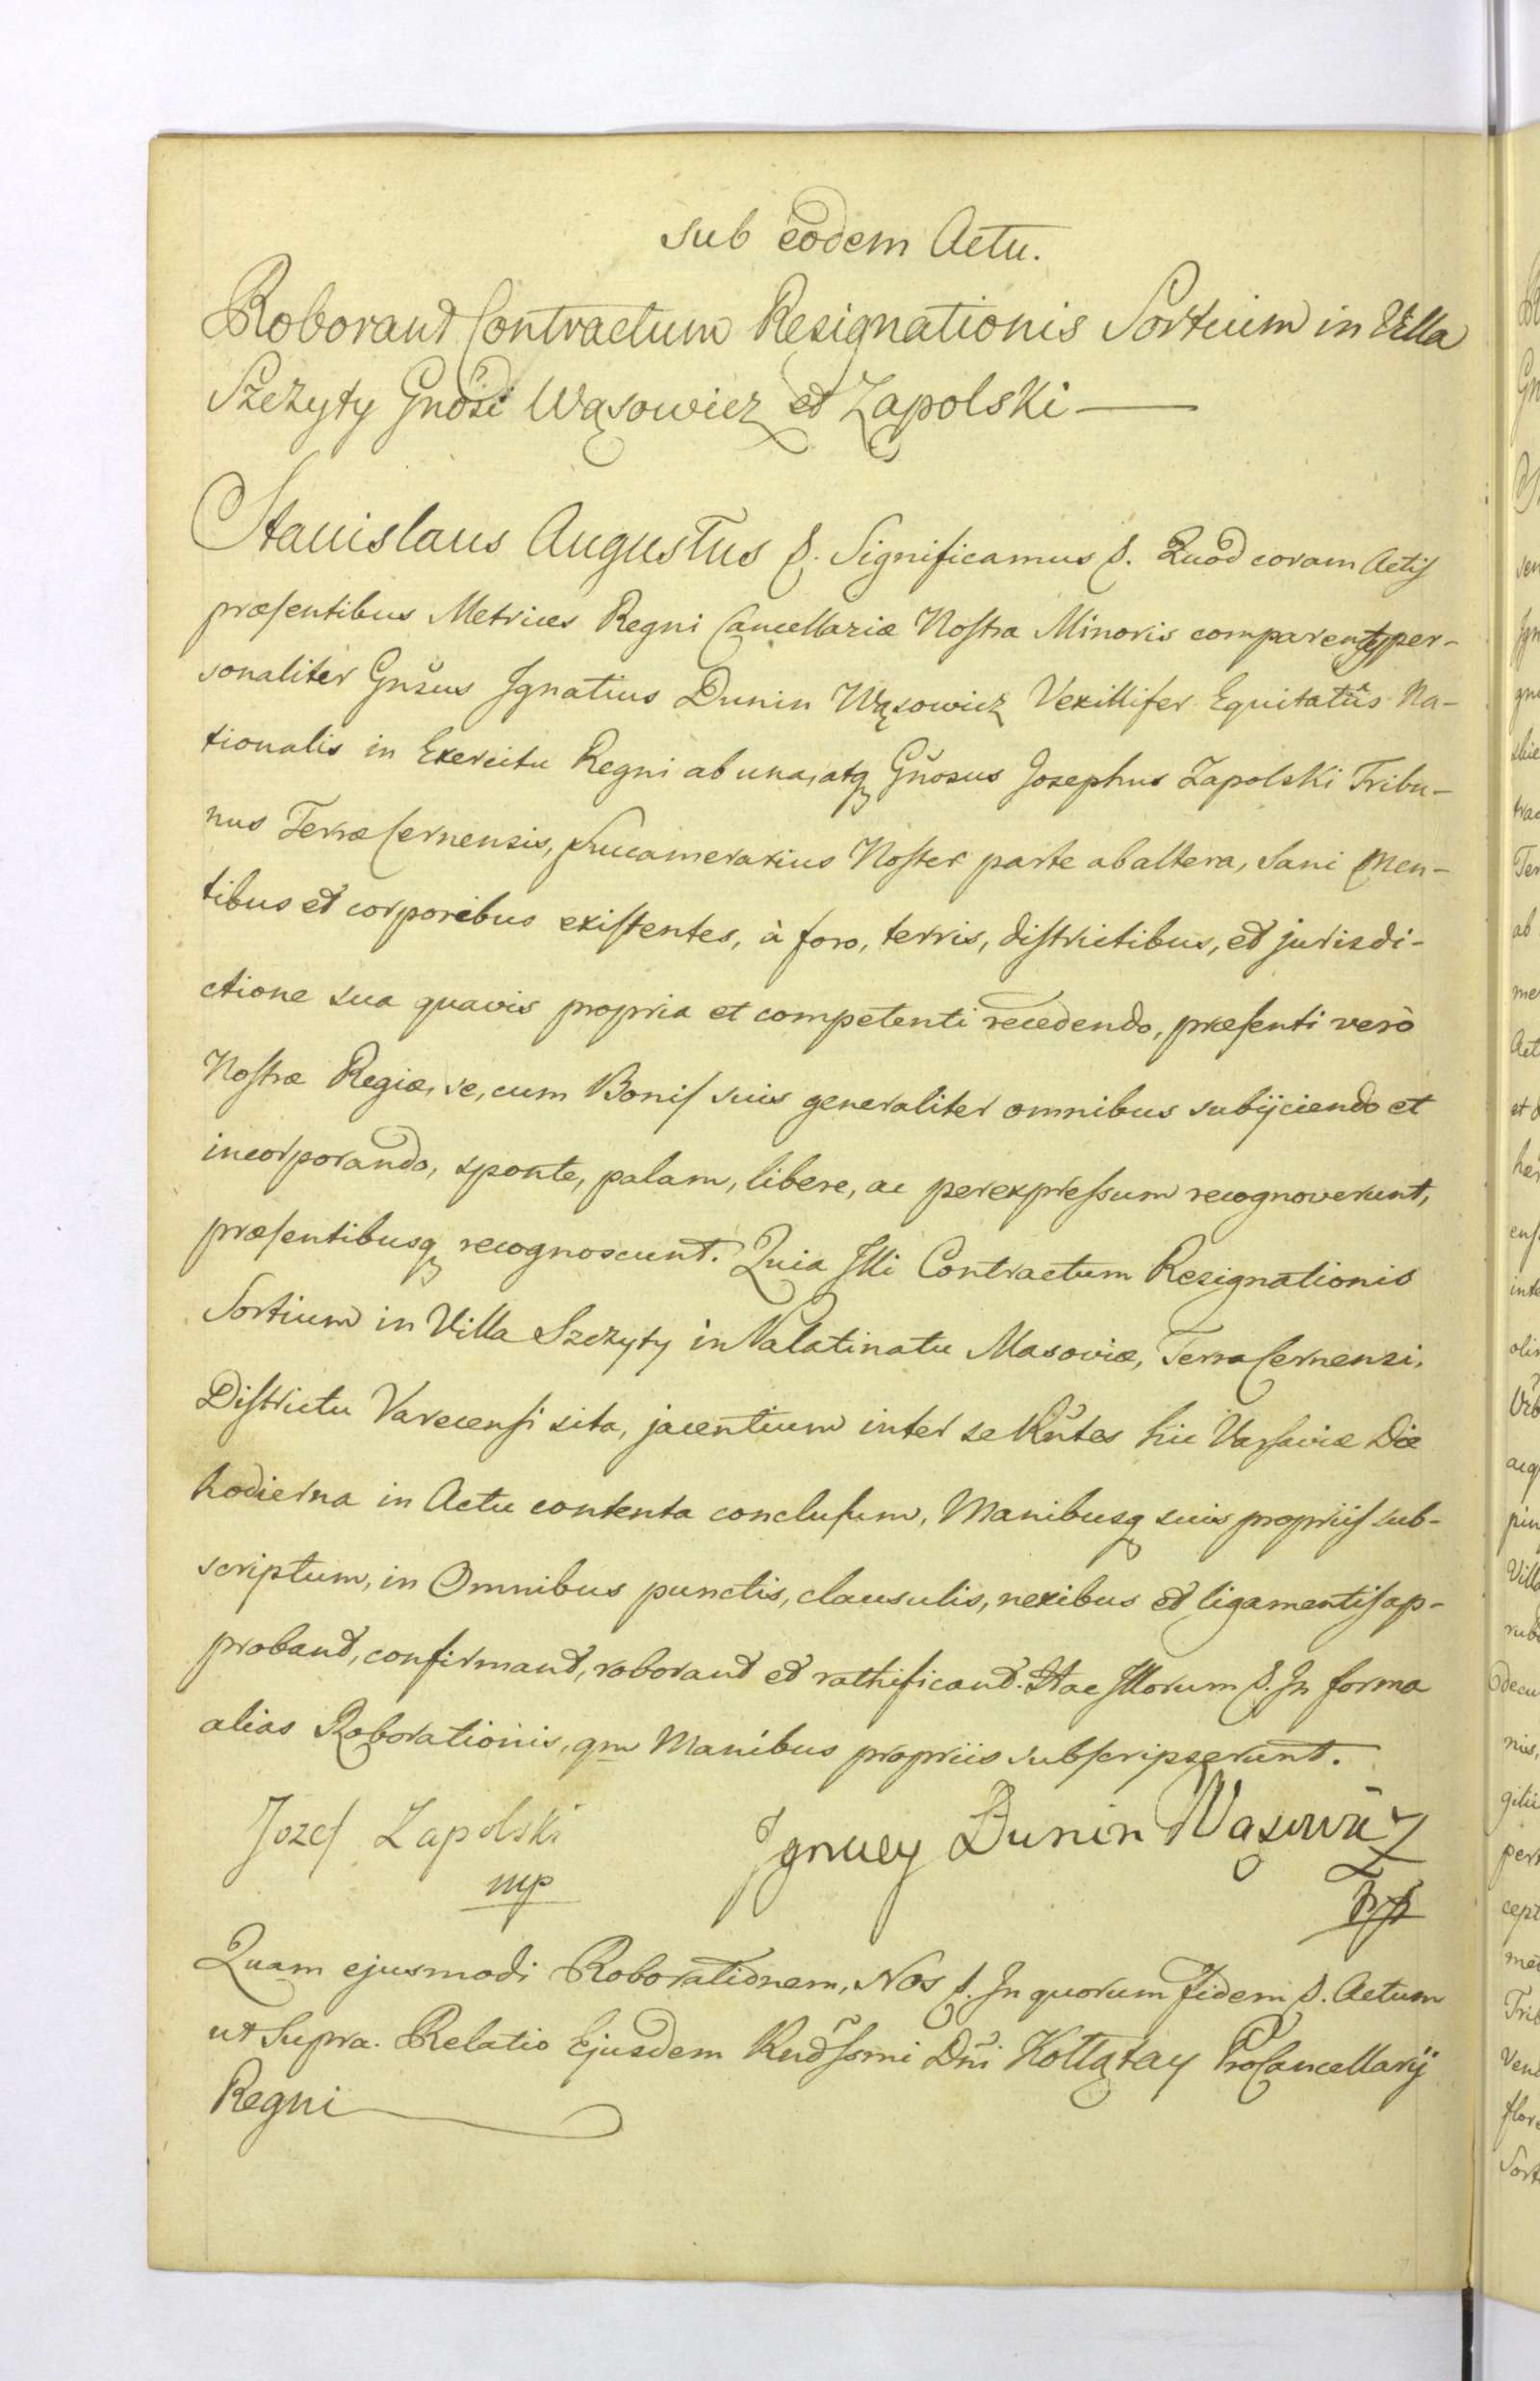 sub eodem Actu.
Roborant Contractum Resignationis Sortium in Villa
Szczyty Gnosi Wąsowicz et Zapolski —
Stanislaus Augustus &. Significamus &. Quod coram Actis
præsentibus Metrices Regni Cancellariæ Nostra Minoris comparentes per-
sonaliter Gnsus Ignatius Dunin Wąsowicz Vexillifer Equitatûs Na-
tionalis in Exercitu Regni ab una, atq Gnosus Josephus Zapolski Tribu-
nus Terræ Cernensis, Succamerarius Noster parte ab altera, Sani Men-
tibus et corporibus existentes, à foro, terris, districtibus, et jurisdi-
ctione sua quavis propria et competenti recedendo, præsenti verò
Nostræ Regiæ, se, cum Bonis suis generaliter omnibus subijciendo et
incorporando, sponte, palam, libere, ac perexpressum recognoverunt,
præsentibusq recognoscunt. Quia Illi Contractum Resignationis
Sortium in Villa Szczyty in Palatinatu Masoviæ, Terra Cernensi,
Districtu Varecensi sita, jacentium inter se Rntes hic Varsaviæ Die
hodierna in Actu contenta conclusum, Manibusq suis propriis sub-
scriptum, in Omnibus punctis, clausulis, nexibus et ligamentis ap-
probant, confirmant, roborant et rathificant. Hac Illorum &. In forma
alias Roborationis, qm Manibus propriis subscripserunt.
Jozef Zapolski Ignacy Dunin Wąsowicz
mp
Quam ejusmodi Roborationem, Nos &. In quorum fidem &. Actum
ut Supra. Relatio Ejusdem Rndssmi Dni Kołłątay ProCancellarij
Regni